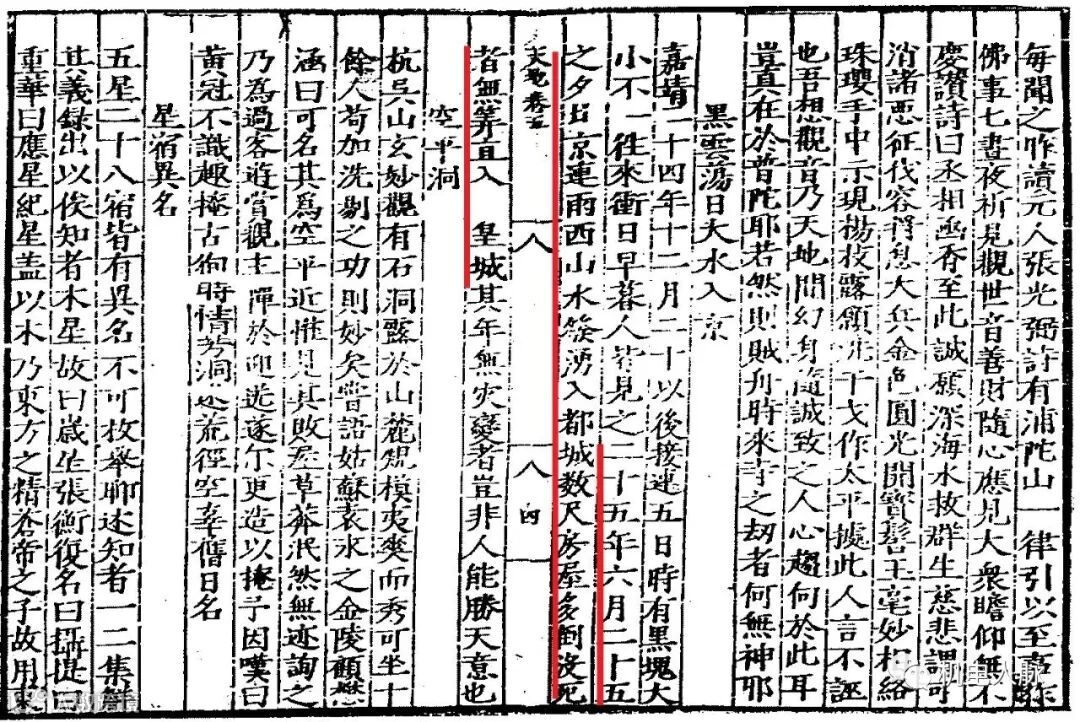 每聞之昨讀元人張光弼詩有浦陀山一律引以至
佛事七晝夜祈見觀世音善財隨心應見大衆瞻仰無不
慶讚詩曰丞相函香至此誠願深海水救群生慈悲謂可
消諸惡征伐容將息大兵金色圓光開寶髻玉毫妙相絡
珠瓔手中示現楊枝露願洗干戈作太平據此人言不誣
也吾想觀音乃天地間幻身隨誠致之人心趨向於此耳
豈真在於普陀耶若然則賊舟時來寺之刼者何無神耶
黑雲蕩日大水入京
嘉靖二十四年十二月二十以後接連五日時有黑塊大
小不一往來衝日早暮人皆見之二十五年六月二十五
之夕出京連雨西山水發湧入都城数尺房屋多倒沒死
天地卷五 八 八 四
者無筭直入 皇城其年無灾變者豈非人能勝天意也
空平洞
杭吳山玄妙觀有石洞露於山麓規模夷爽而秀可坐十
餘人苟加洗剔之功則妙矣嘗語姑蘇袁永之金陵顧懋
涵曰可名其爲空平近惟見其敗壁草莽泯然無迹詢之
乃爲過客遊賞觀主憚於迎送遂尔更造以掩予因嘆曰
黃冠不識趣掩古徇時情芳洞迷荒徑空辜舊日名
星宿異名
五星二十八宿皆有異名不可枚舉聊述知者一二集觧
其義錄出以俟知者木星故曰歲生張衡復名曰攝提曰
重華曰應星紀星蓋以木乃東方之精蒼帝之子故用東
机电人脉